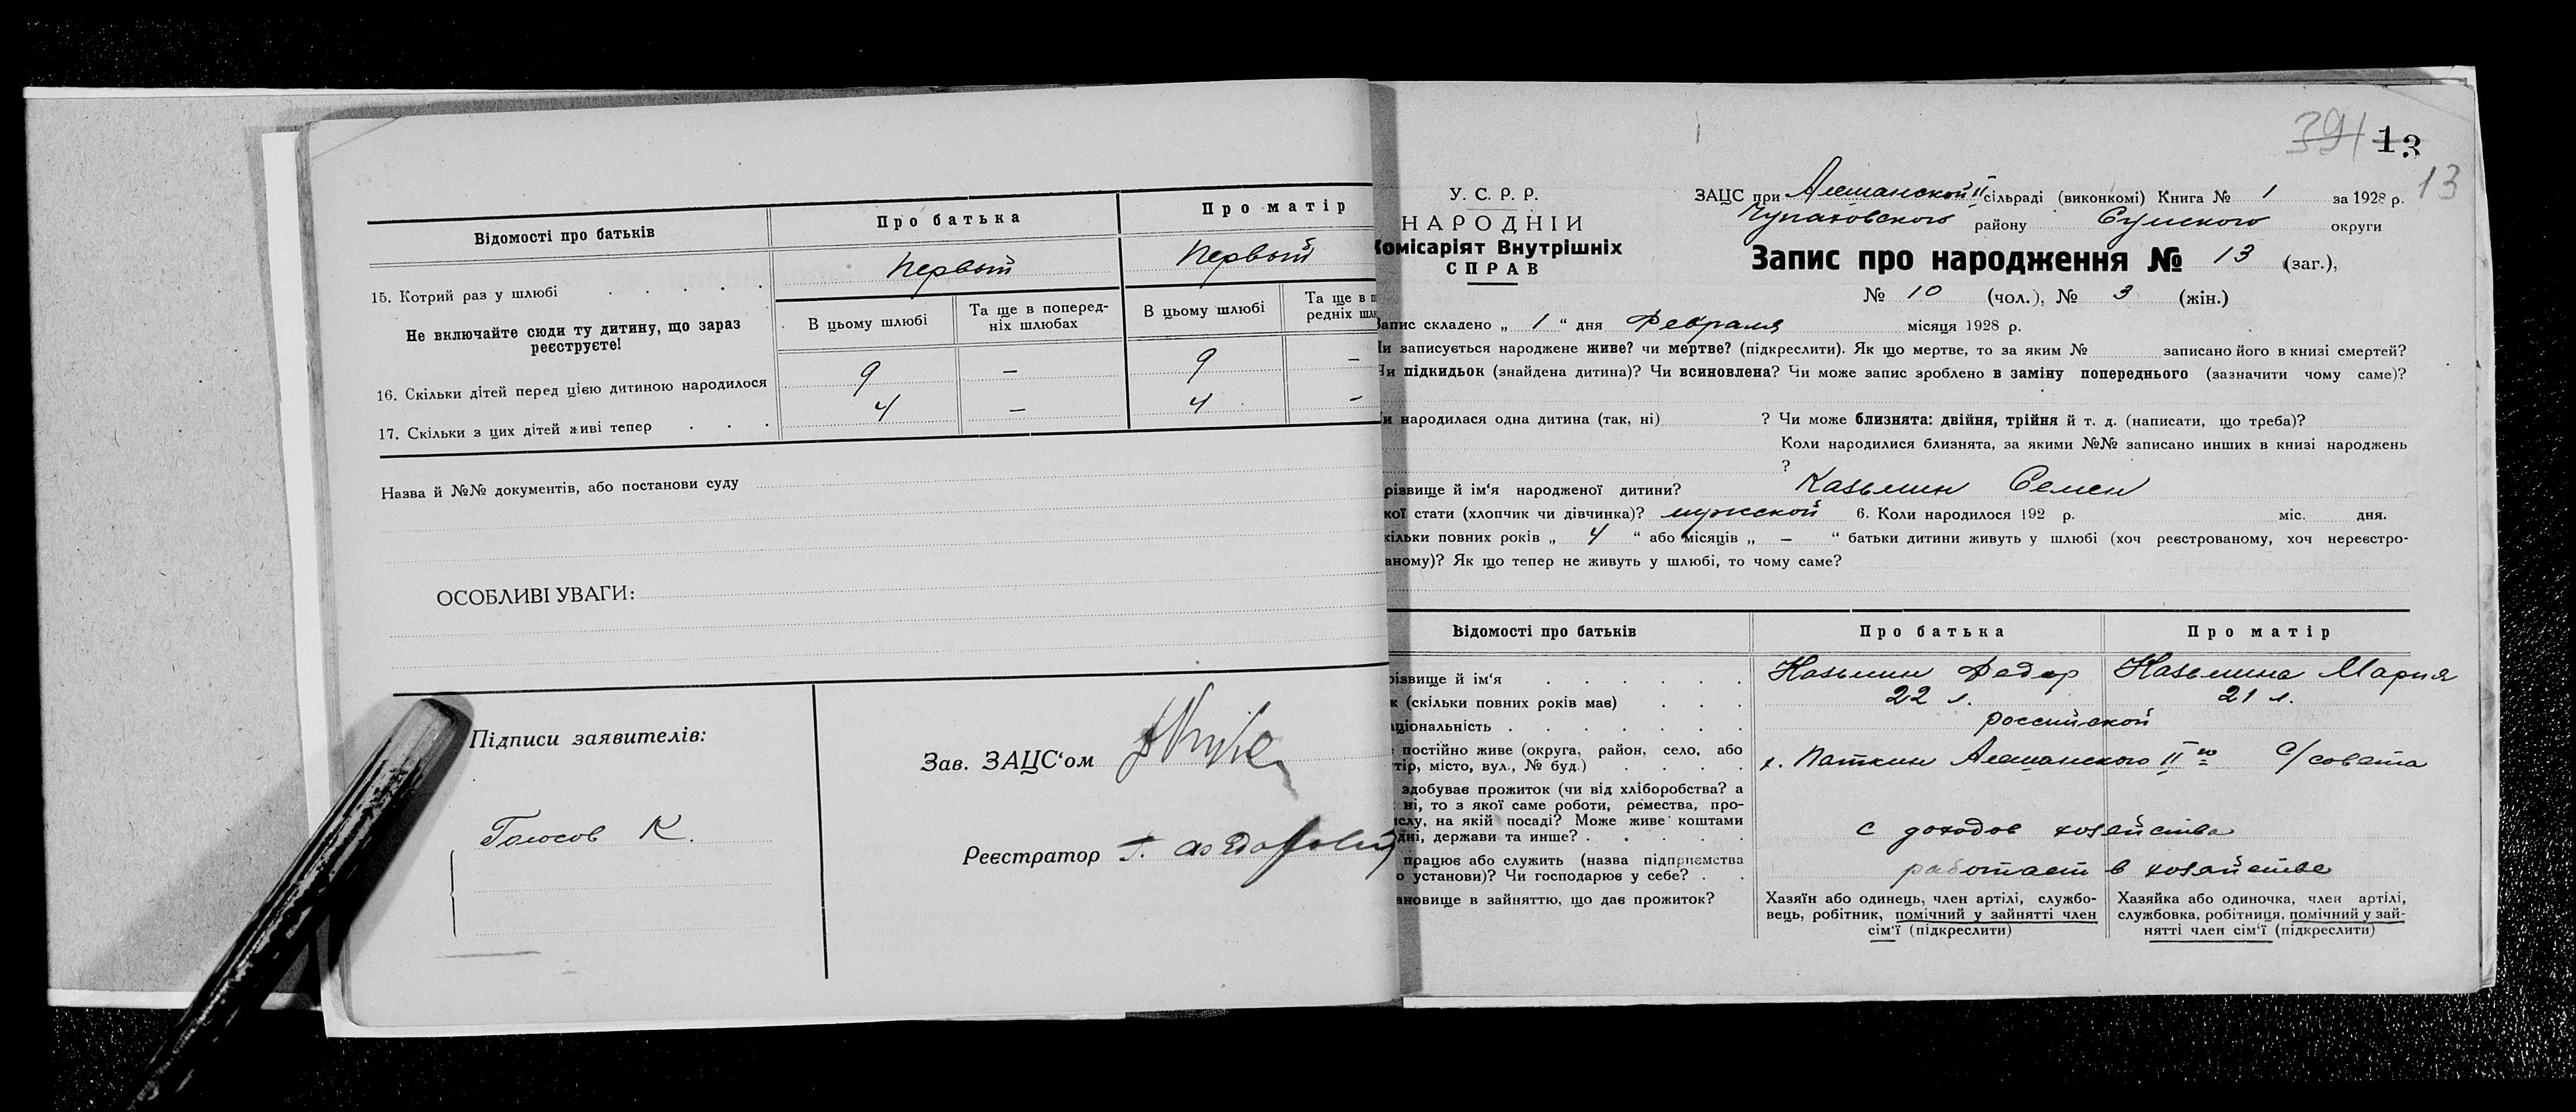 Відомості про батьків
Про батька
Про матір
15. Котрий раз у шлюбі . . . . .
первый
первый
Не включайте сюди ту дитину, що зараз
реєструєте!
В цьому шлюбі
Та ще в поперед-
ніх шлюбах
В цьому шлюбі
Та ще в п
редніх шл
16. Скільки дітей перед цією дитиною народилося
9
–
9
–
17. Скільки з цих дітей живі тепер . . .
4
–
4
–
Назва й №№ документів, або постанови суду
ОСОБЛИВІ УВАГИ:
Підписи заявителів:
Голосов К.
Зав. ЗАЦС‘ом
Реєстратор
391 13
13
У. С. Р. Р.
НАРОДНІЙ
Комісаріят Внутрішніх
СПРАВ
ЗАЦС при Алешанской II сільраді (виконкомі) Книга № 1 за 1928 р.
Чупаховского району Сумского округи
Запис про народження № 13 (заг.),
№ 10 (чол.), № 3 (жін.)
Запис складено „ 1 “ дня Февраля місяця 1928 р.
Чи записується народжене живе? чи мертве? (підкреслити). Як що мертве, то за яким № записано його в книзі смертей?
Чи підкидьок (знайдена дитина)? Чи всиновлена? Чи може запис зроблено в заміну попереднього (зазначити чому саме)?
и народилася одна дитина (так, ні) ? Чи може близнята: двійня, трійня й т. д. (написати, що треба)?
Коли народилися близнята, за якими №№ записано инших в книзі народжень
?
різвище й ім‘я народженої дитини? Казьмин Семен
кої стати (хлопчик чи дівчинка)? мужской 6. Коли народилося 192 р. міс. дня.
кільки повних років „ 4 “ або місяців „ – “ батьки дитини живуть у шлюбі (хоч реєстрованому, хоч нереєстро-
аному)? Як що тепер не живуть у шлюбі, то чому саме?
Відомості про батьків
Про батька
Про матір
різвище й ім‘я . . . . . .
Казьмин Федор
Казьмина Мария
к (скільки повних років має) . . .
22 л.
21 л.
ціональність . . . . . . .
российской
постійно живе (округа, район, село, або
тір, місто, вул., № буд.) . . . .
х. Паткин Алешанского II го с/совета
здобуває прожиток (чи від хліборобства? а
ні, то з якої саме роботи, ремества, про-
ислу, на якій посаді? Може живе коштами
дні, держави та инше? . . . .
с доходов хозяйства
працює або служить (назва підприємства
о установи)? Чи господарює у себе? . .
работает в хозяйстве
ановище в зайняттю, що дає прожиток?
Хазяїн або одинець, член артілі, службо-
вець, робітник, помічний у зайнятті член
сім‘ї (підкреслити)
Хазяйка або одиночка, член артілі,
службовка, робітниця, помічний у зай-
нятті член сім‘ї (підкреслити)